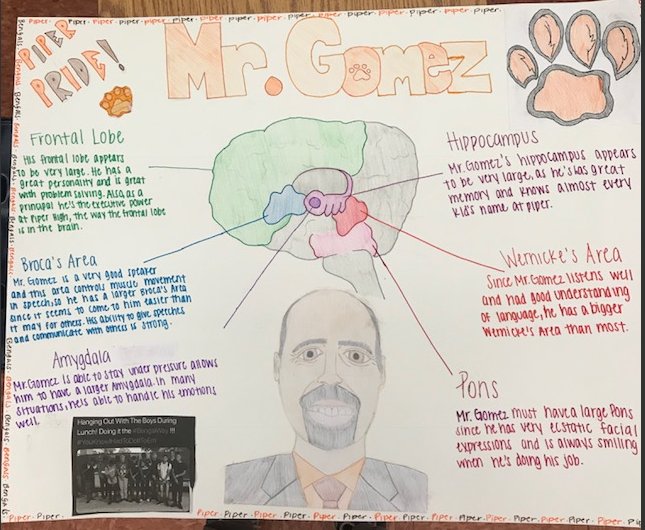 Piper. Piper. Piper. Piper. Piper. Piper. Piper. Piper. Piper. Piper. Piper.
PIPER
PRIDE!
Mr. Gomez
Frontal Lobe
His frontal lobe appears
to be very large. He has a
great personality and is great
with problem solving. Also, as a
principal he's the executive power
at Piper High, the way the frontal lobe
is in the brain.
Hippocampus
Mr. Gomez's hippocampus appears
to be very large, as he's has great
memory and knows almost every
kid's name at piper.
Broca's Area
Mr. Gomez is a very good speaker
and this area controls muscle movement
in speech, so he has a larger Broca's Area
since it seems to come to him easier than
it may for others. His ability to give speeches
and communicate with others is strong.
Wernicke's Area
Since Mr. Gomez listens well
and had good understanding
of language, he has a bigger
Wernicke's Area than most.
Amygdala
Mr. Gomez is able to stay under pressure allows
him to have a larger Amygdala. In many
situations, he's able to handle his emotions
well.
Pons
Mr. Gomez must have a large Pons
since he has very ecstatic facial
expressions and is always smiling
when he's doing his job.
Hanging Out With The Boys During
Lunch! Doing it the #BengalWay !!!
#YouKnowIHadToDoItToEm
Bengals. Bengals. Bengals. Bengals. Bengals. Bengals. Bengals. Bengals. Bengals.
Piper. Piper.
Piper. Piper. Piper. Piper. Piper. Piper. Piper. Piper. Piper. Piper. Piper.